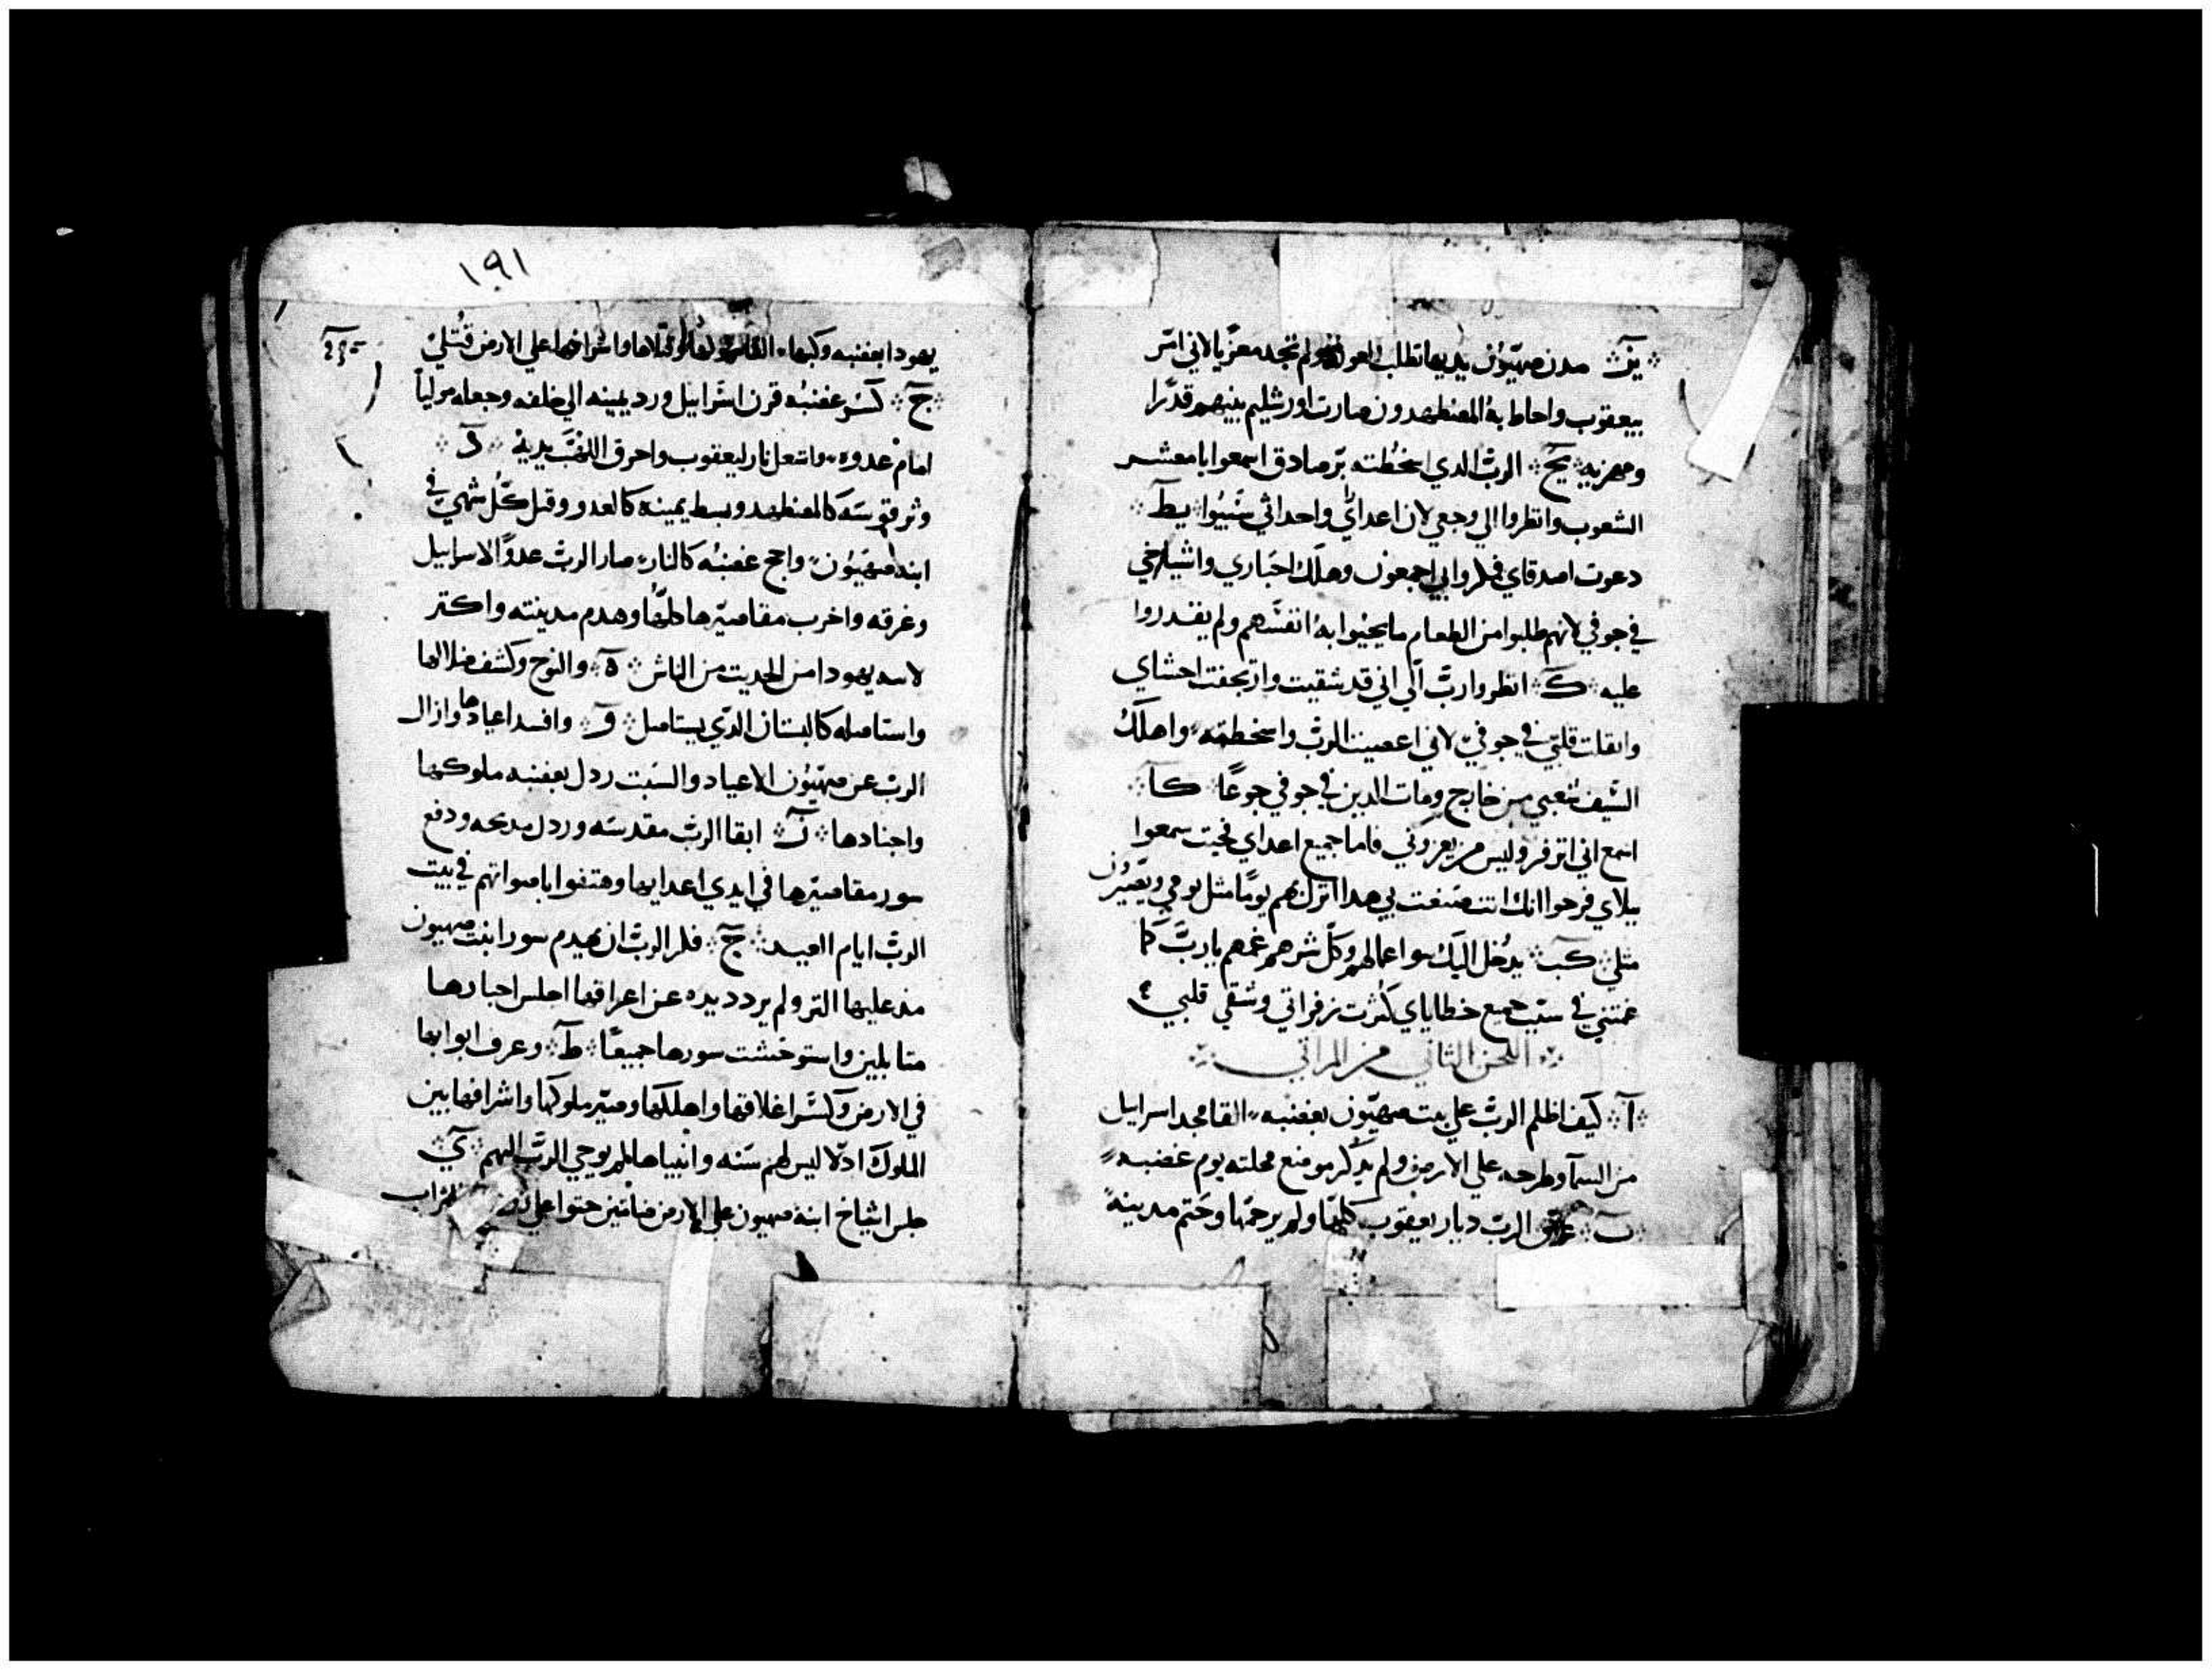 يز مدت صهيون يديها تطلب العون ولم تجد معزيا لاني امر
بيعقوب واحاط به المضطهدون صارت اورشليم بينهم قدرا
ومهزيه يح الرب الدي اسخطته بر صادق اسمعوا يا معشر
الشعوب وانظروا الي وجعي لان اعداي واحداثي سبيوا يط
دعوت اصدقاي فكروا بي اجمعون وهلك احباري واشياخي
في جوفي لانهم طلبوا من الطعام ما يحيوا به انفسهم ولم يقدروا
عليه ك انظر يا رب الي اني قد شقيت وارتجفت احشاي
وانقلت قلبي في جوفي لاني اعصيت الرب واسخطته واهلك
السيف شعبي من خارج ومات الدين في جوفي جوعا كا
اسمع اني اتزفر وليس من يعزوني فاما جميع اعداي سمعوا
ببلاي فرحوا انك انت صنعت بي هدا انزل بهم يوما مثل يومي ويصيرون
مثلي كب يدخل اليك سو اعمالهم وكل شرهم غمهم يا رب كما
غمتني في سبب جميع خطاياي كثرت زفراتي وشقي قلبي
اللحن التاني من المراتي
ا كيف اظلم الرب علي بيت صهيون بغضبه القا مجد اسرايل
من السما وطرحه علي الارض ولم يدكر موضع محلته يوم غضبه
ب غرق الرب ديار يعقوب كلها ولم يرحمها وختم مدينة
١٩١
يهودا بغضبه وكبها قتلاها واشرافها علي الارض قتلي
ج كسر غضبه قرن اسرايل ورد يمينه الي خلفه وجعله موليا
امام عدوه واشعل نار ليعقوب واحرق اللهب يديه د
وثر قوسه كالمضطهد وبسط يمينه كالعدو وقتل كل شهي في
ابنة صهيون واجج غضبه كالنار صار الرب عدوا لاسرايل
وغرقه واخرب مقاصيرها كلها وهدم مدينته واكتر
لابنة يهودا من الحديت من الناس ه والنوح وكشف ضلالها
واستاصله كالبستان الدي يستاصل و وافسد اعيادها وازال
الرب عن صهيون الاعياد والسبت ردل بغضبه ملوكها
واجنادها ز ابقا الرب مقدسه وردل مدبحه ودفع
سور مقاصيرها في ايدي اعدايها وهتفوا باصواتهم في بيت
الرب ايام العيد ح فكر الرب ان يهدم سور ابنت صهيون
مد عليها التر ولم يردد يده عن اعراقها اجلس احبارها
متابلين واستوخشت سورها جميعا ط وغرف ابوابها
في الارض وكسر اغلاقها واهلكها وصير ملوكها واشرافها بين
الملوك ادلا ليس لهم سنه وانبياها لم يوحي الرب اليهم ي
جلس اشياخ ابنة صهيون علي الارض صامتين حتوا علي التراب